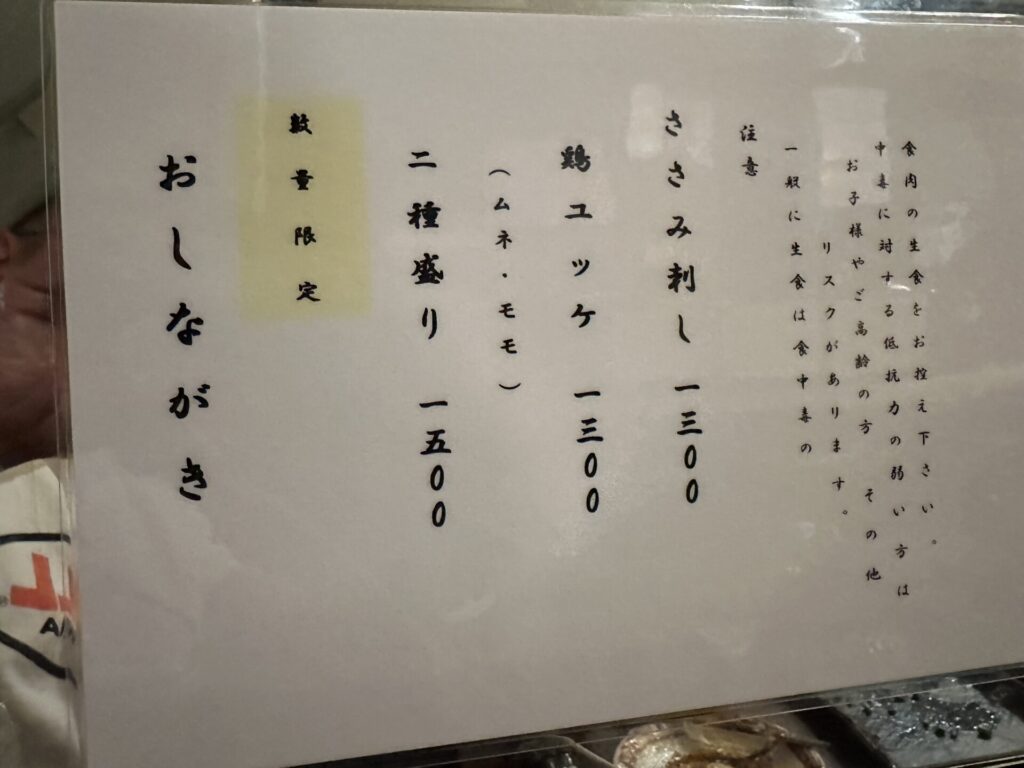 おしながき
数量限定
二種盛り 一五〇〇
（ムネ・モモ）
鶏ユッケ 一三〇〇
ささみ刺し 一三〇〇
注意
一般に生食は食中毒の
リスクがあります。
お子様やご高齢の方 その他
中毒に対する低抗力の弱い方は
食肉の生食をお控え下さい。